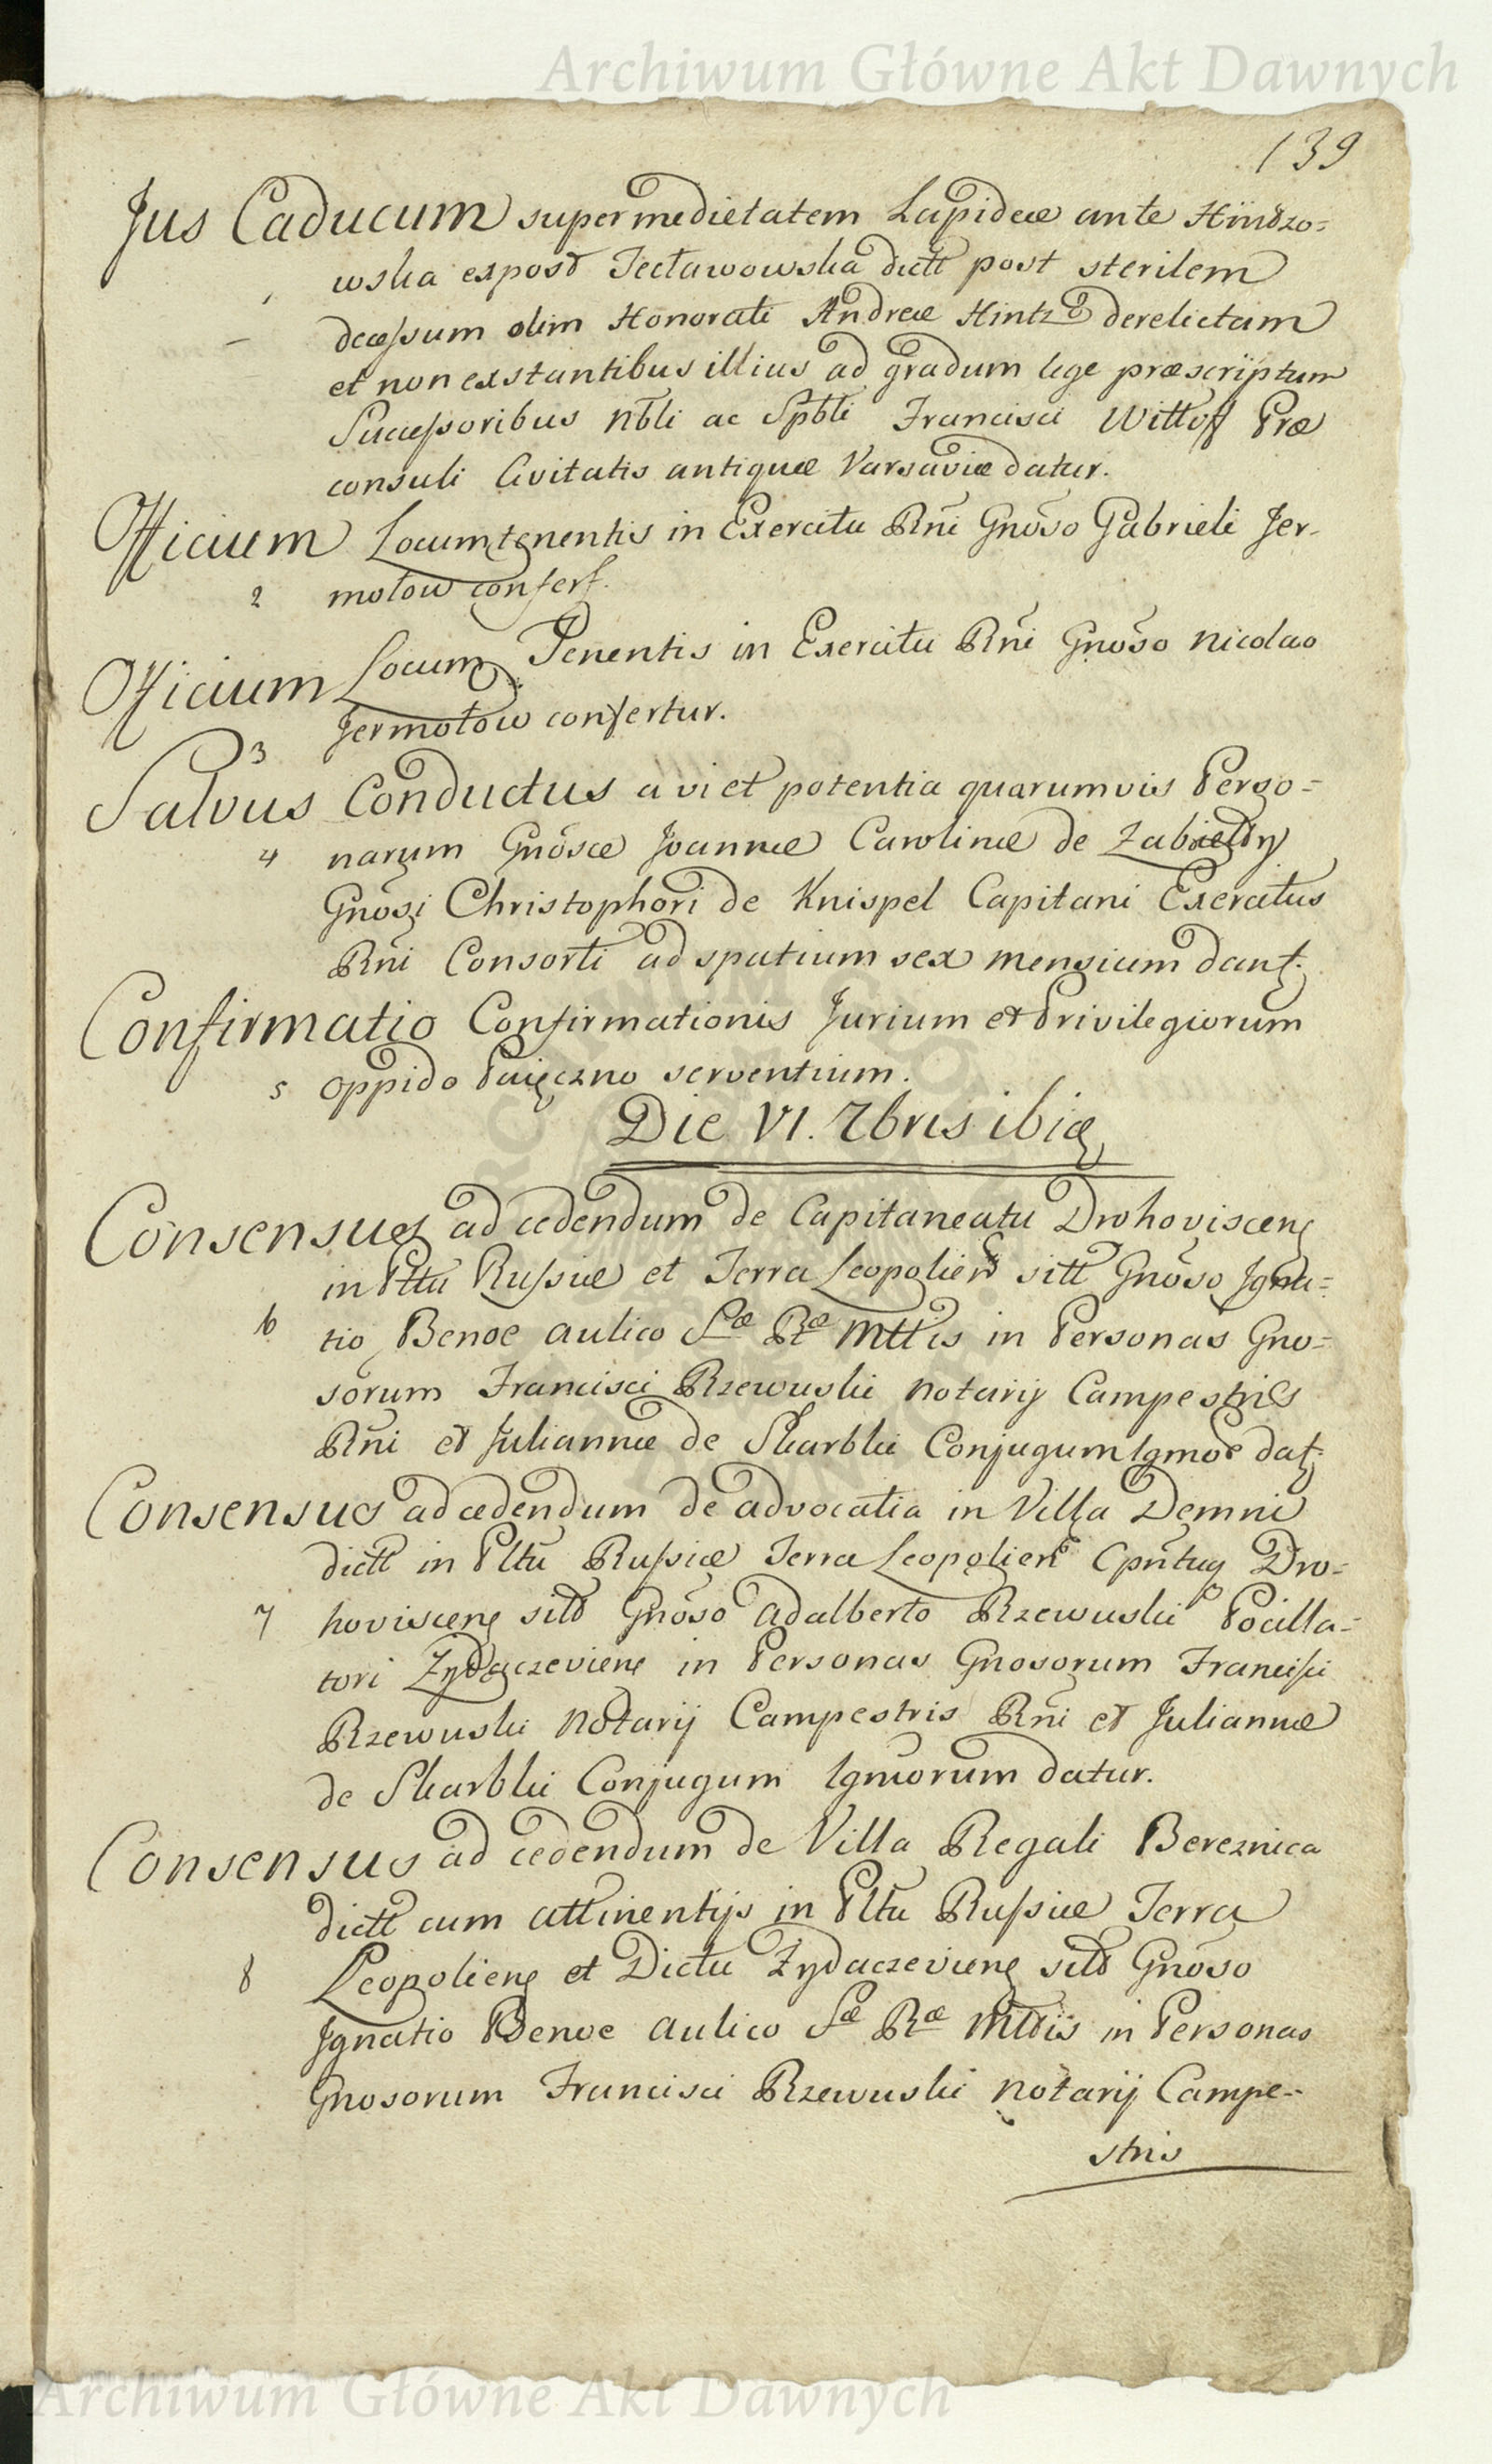 Archiwum Główne Akt Dawnych
139
Jus Caducum super medietatem Lapideæ ante Hindzo=
wska expost Tecławowska dictt post sterilem
decessum olim Honorati Andreæ Hintz derelictam
et non exstantibus illius ad gradum lege præscriptum
Successoribus Nbli ac Spbli Francisci Wittoff Præ
consuli Civitatis antiquæ Varsaviæ datur.
Officium Locumtenentis in Exercitu Rni Gnoso Gabrieli Jer-
2 mołow confert.
Officium Locum Tenentis in Exercitu Rni Gnoso Nicolao
3 Jermołow confertur.
Salvus Conductus a vi et potentia quarumvis Perso=
4 narum Gnosæ Joannæ Carolinæ de
Gnosi Christophori de Knispel Capitani Exercitus
Rni Consorti ad spatium sex mensium dant.
Confirmatio Confirmationis Jurium et Privilegiorum
5 oppido Paięczno serventium.
Die VI. 7bris ibid
Consensus ad cedendum de Capitaneatu Drohoviscens
in Pltu Russiæ et Terra Leopolien sitt Gnoso Igna=
6 tio Benoe aulico Sæ Ræ Mttis in Personas Gno=
sorum Francisci Rzewuski Notarij Campestris
Rni et Juliannæ de Skarbki Conjugum lgmor dat.
Consensus ad cedendum de advocatia in Villa Demni
dictt in Pltu Russiæ Terra Leopolien Cpntuq Dro=
7 hoviscens sitt Gnoso Adalberto Rzewuski Pocilla=
tori Zydaczeviens in Personas Gnosorum Francisci
Rzewuski Notarij Campestris Rni et Juliannæ
de Skarbki Conjugum lgmorum datur.
Consensus ad cedendum de Villa Regali Bereznica
dictt cum attinentijs in Pltu Russiæ Terra
8 Leopoliens et Dictu Zydaczeviens sitt Gnoso
Ignatio Benoe aulico Sæ Ræ Mttis in Personas
Gnosorum Francisci Rzewuski Notarij Campe=
stris
Archiwum Główne Akt Dawnych